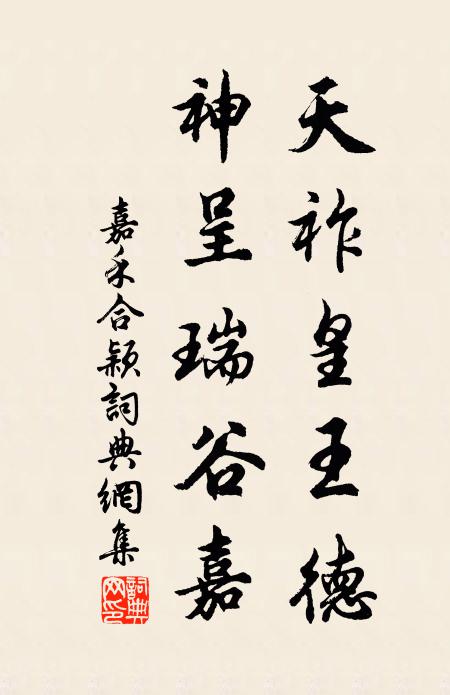 天祚皇王德
神呈瑞谷嘉
嘉禾合颖詞典網集
詞典网印